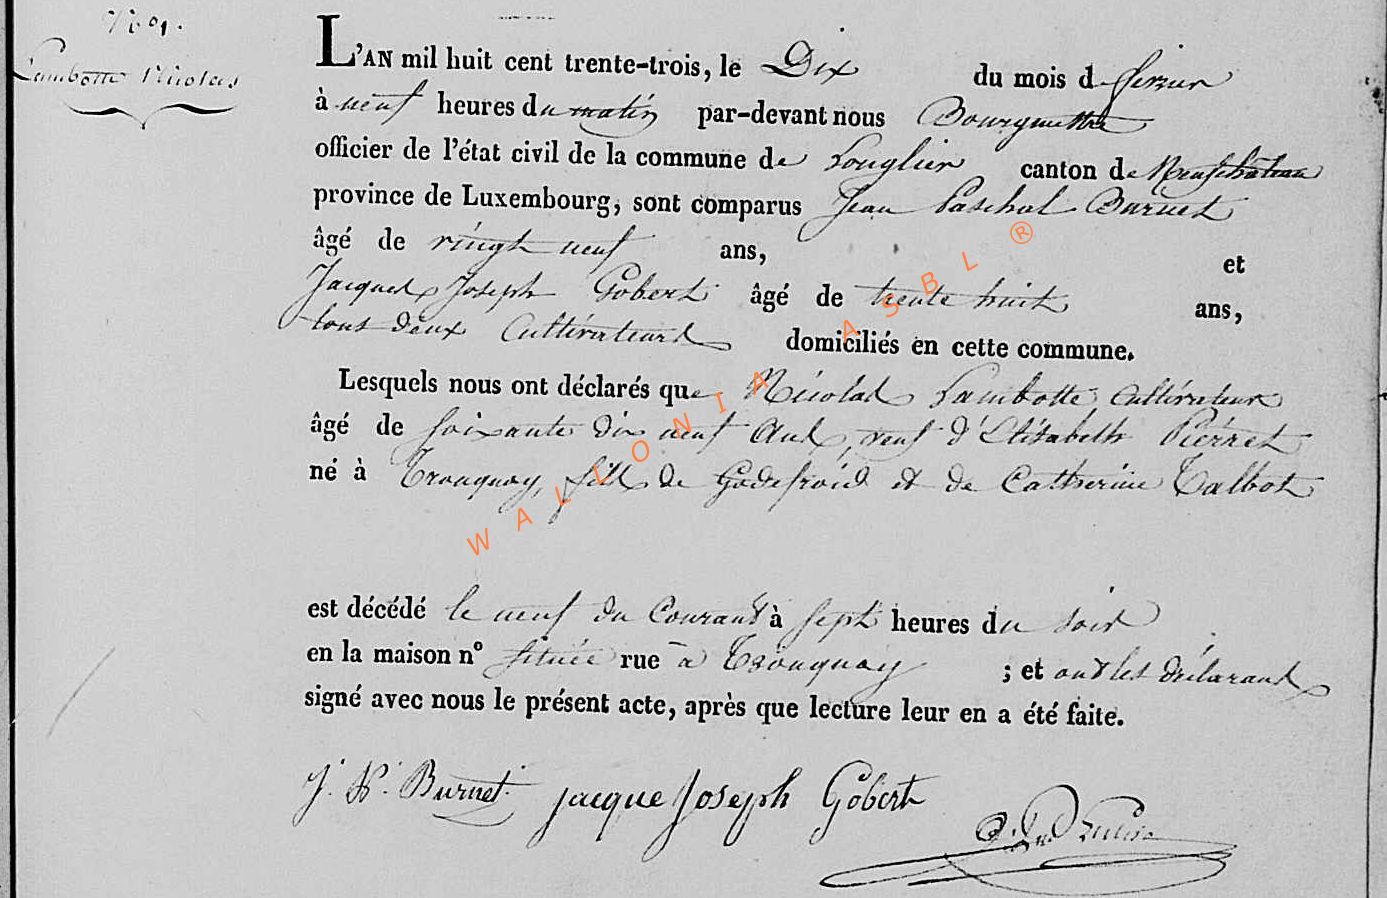 Lambotte Nicolas
L'AN mil huit cent trente-trois, le Dix du mois d
à neuf heures du matin par-devant nous Bourgmettre
officier de l'état civil de la commune de Longlier canton de Neufchâteau
province de Luxembourg, sont comparus Jean Paschal Burnet
âgé de vingt neuf ans, et
Jacques Joseph Gobert âgé de trente huit ans,
tous deux Cultivateurs domiciliés en cette commune.
Lesquels nous ont déclarés que Nicolas Lambotte Cultivateur
âgé de soixante dix neuf ans, veuf d'Elisabeth Pierret
né à Tronquoy, fils de Godefroid et de Catherine Talbot
est décédé le neuf du Courant à sept heures du soir
en la maison n° située rue à Tronquoy ; et ont les déclarans
signé avec nous le présent acte, après que lecture leur en a été faite.
J. P. Burnet. jacque Joseph Gobert
WALLONIA ASBL ®